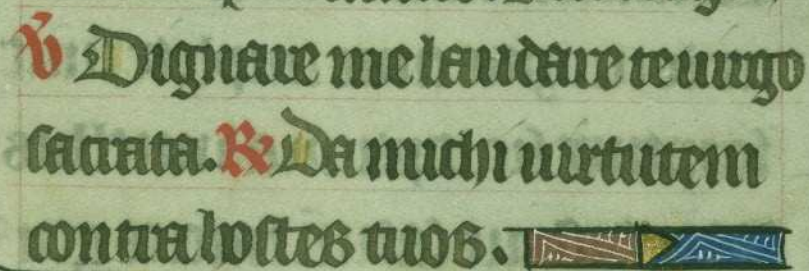 ℣ Dignare me laudare te uirgo
sacrata. ℟ Da michi uirtutem
contra hostes tuos.